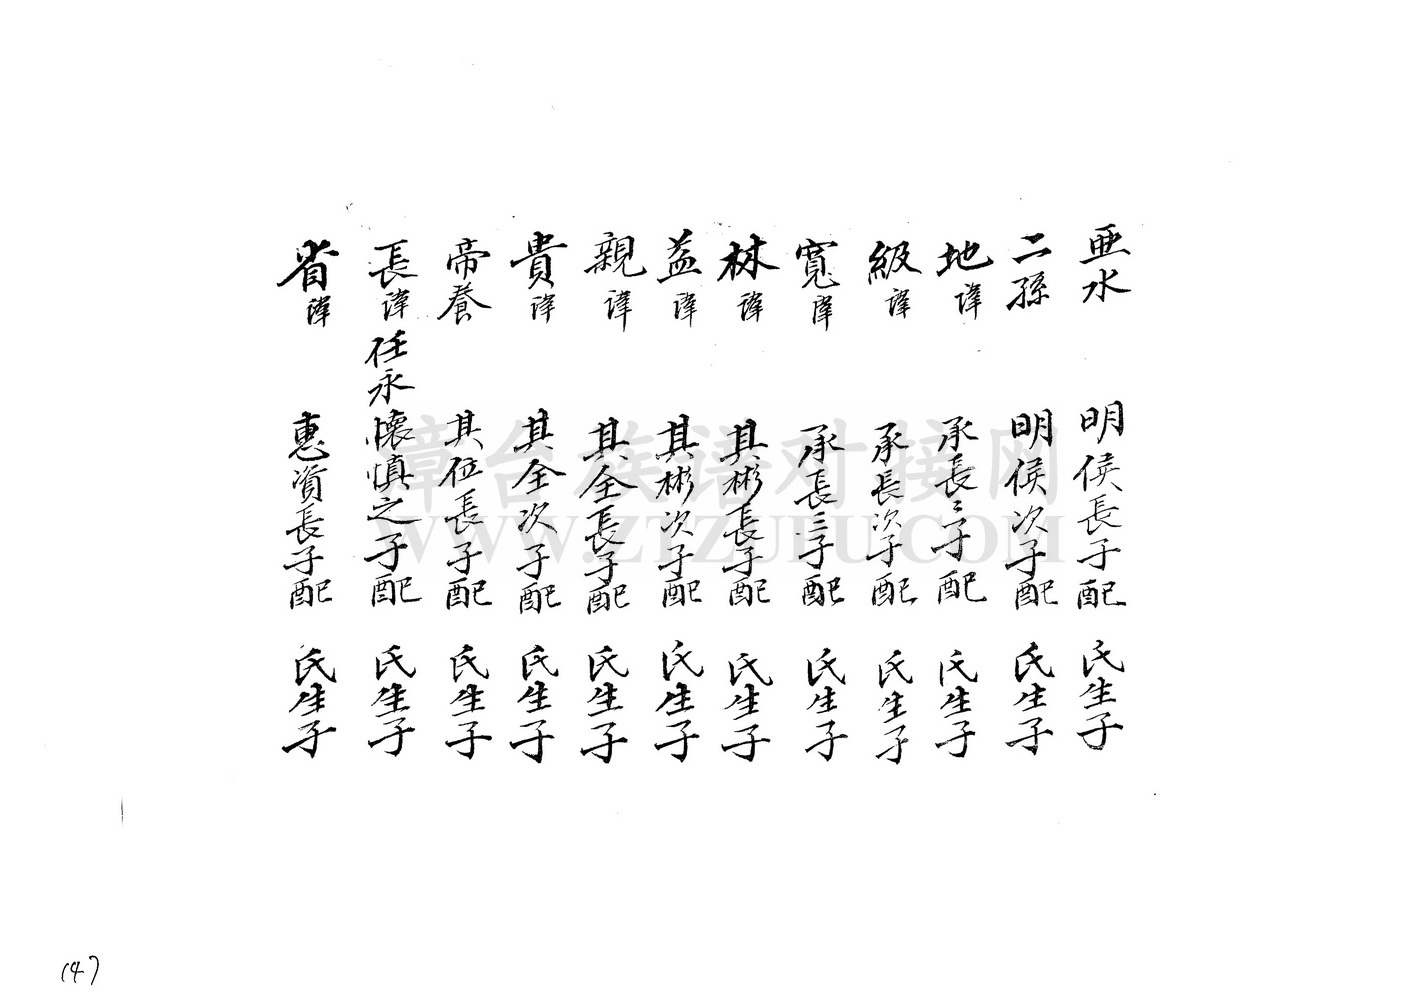 亜水 明侯長子配 氏生子
二孫 明侯次子配 氏生子
地諱 承長二子配 氏生子
級諱 承長次子配 氏生子
寛諱 承長三子配 氏生子
林諱 其彬長子配 氏生子
益諱 其彬次子配 氏生子
親諱 其全長子配 氏生子
貴諱 其全次子配 氏生子
帝養 其位長子配 氏生子
長諱任永懷慎之子配 氏生子
省諱 惠資長子配 氏生子
漳台族谱对接网
WWW.ZTZUPU.COM
(47)